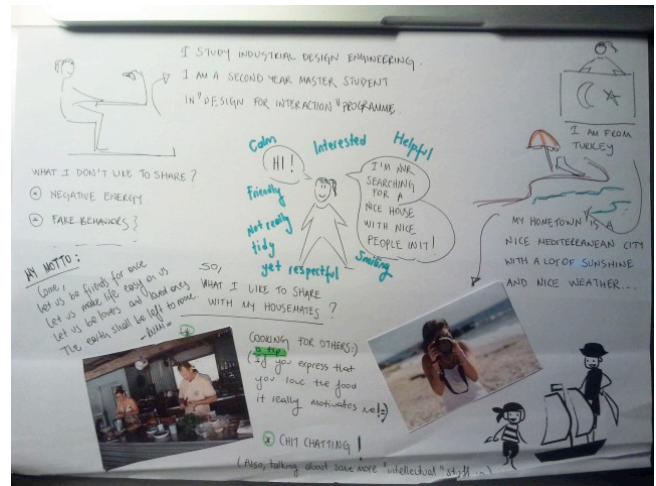 I STUDY INDUSTRIAL DESIGN ENGINEERING.
I AM A SECOND YEAR MASTER STUDENT
IN "DESIGN FOR INTERACTION" PROGRAMME.
I AM FROM
TURKEY
Calm
Interested
Helpful
HI!
I'M NUR
SEARCHING
FOR A
NICE HOUSE
WITH NICE
PEOPLE IN IT!
Friendly
Not really
tidy
yet respectful
Smiling
WHAT I DON'T LIKE TO SHARE?
NEGATIVE ENERGY
FAKE BEHAVIORS
MY HOMETOWN IS A
NICE MEDITERRANEAN CITY
WITH A LOT OF SUNSHINE
AND NICE WEATHER...
MY MOTTO:
Come,
Let us be friends for once
Let us make life easy on us
Let us be lovers and loved ones
The earth shall be left to none
SO,
WHAT I LIKE TO SHARE
WITH MY HOUSEMATES?
COOKING FOR OTHERS:)
a tip
(If you express that
you love the food
it really motivates me!=)
CHIT CHATTING!
(Also, talking about some more "intellectual" stuff...)